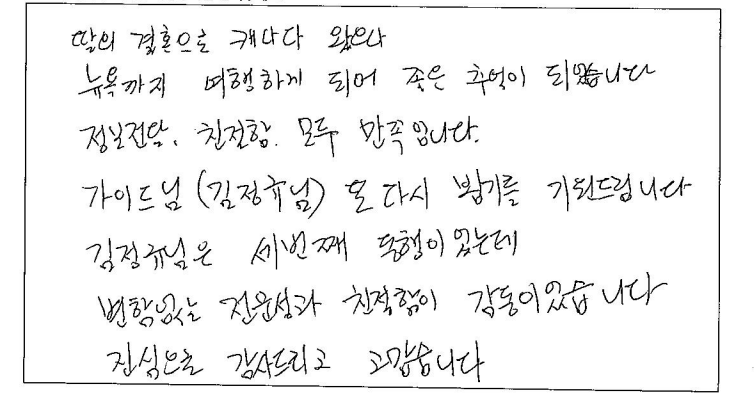 딸의 결혼으로 캐나다 왔으나
뉴욕까지 여행하게 되어 좋은 추억이 되었습니다
정보전달, 친절함. 모두 만족입니다.
가이드님 (김정규님) 또 다시 뵙기를 기원드립니다
김정규님은 세번째 동행이었는데
변함없는 전문성과 친절함이 감동이었습니다
진심으로 감사드리고 고맙습니다